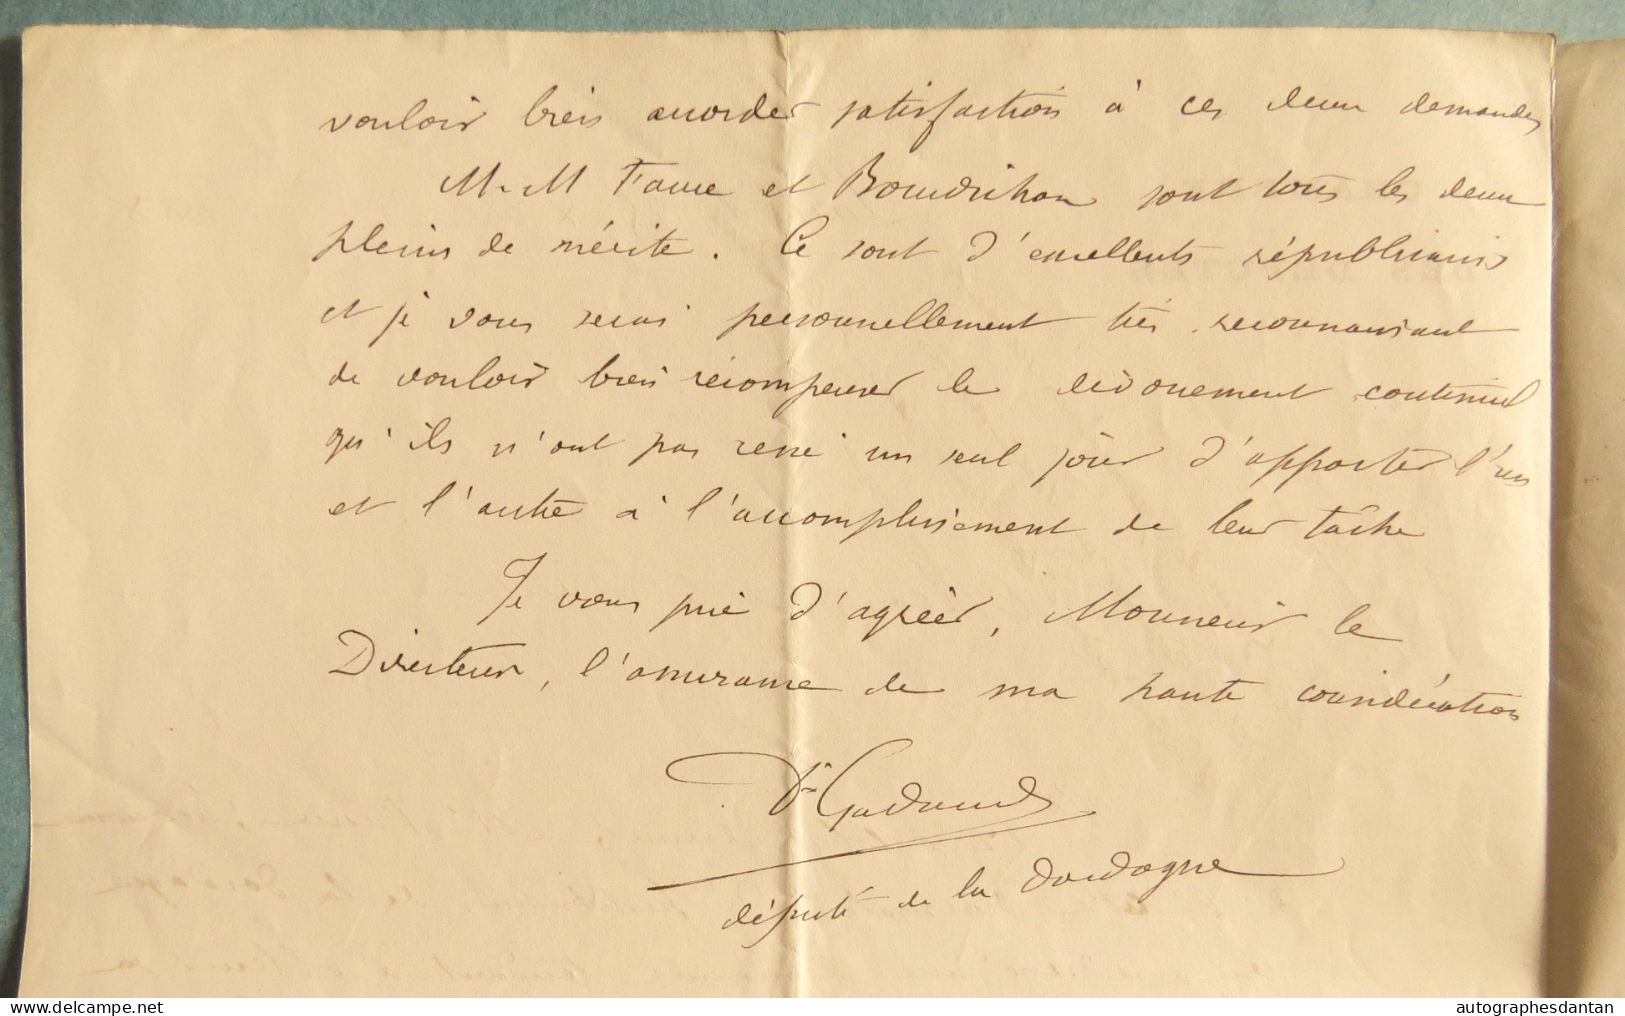 vouloir bien accorder satisfaction à ces deux demandes
M.M Faure et sont tous les deux
pleins de mérite. Ce sont d'excellents républicains
et je vous serai personnellement très reconnaissant
de vouloir bien récompenser le dévouement continuel
qu'ils n'ont pas cessé un seul jour d'apporter l'un
et l'autre à l'accomplissement de leur tâche
Je vous prie d'agréer, Monsieur le
Directeur, l'assurance de ma haute considération
Dr Gadaud
député de la Dordogne
autographesdantan